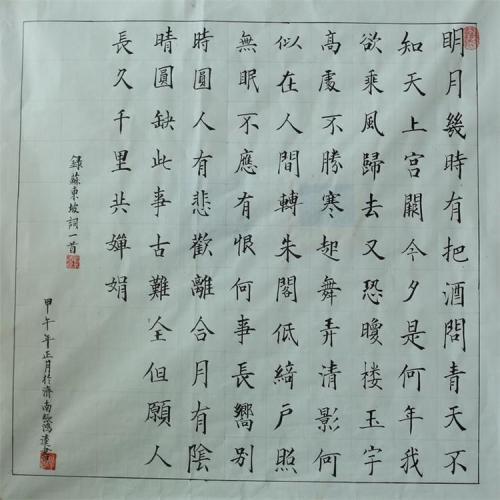 明月幾時有把酒問青天不
知天上宮闕今夕是何年我
欲乘風歸去又恐瓊楼玉宇
高處不勝寒起舞弄清影何
似在人間轉朱閣低綺戶照
無眠不應有恨何事長嚮别
時圓人有悲歡離合月有陰
晴圓缺此事古難全但願人
長久千里共嬋娟
錄蘇東坡詞一首
甲午年正月於濟南